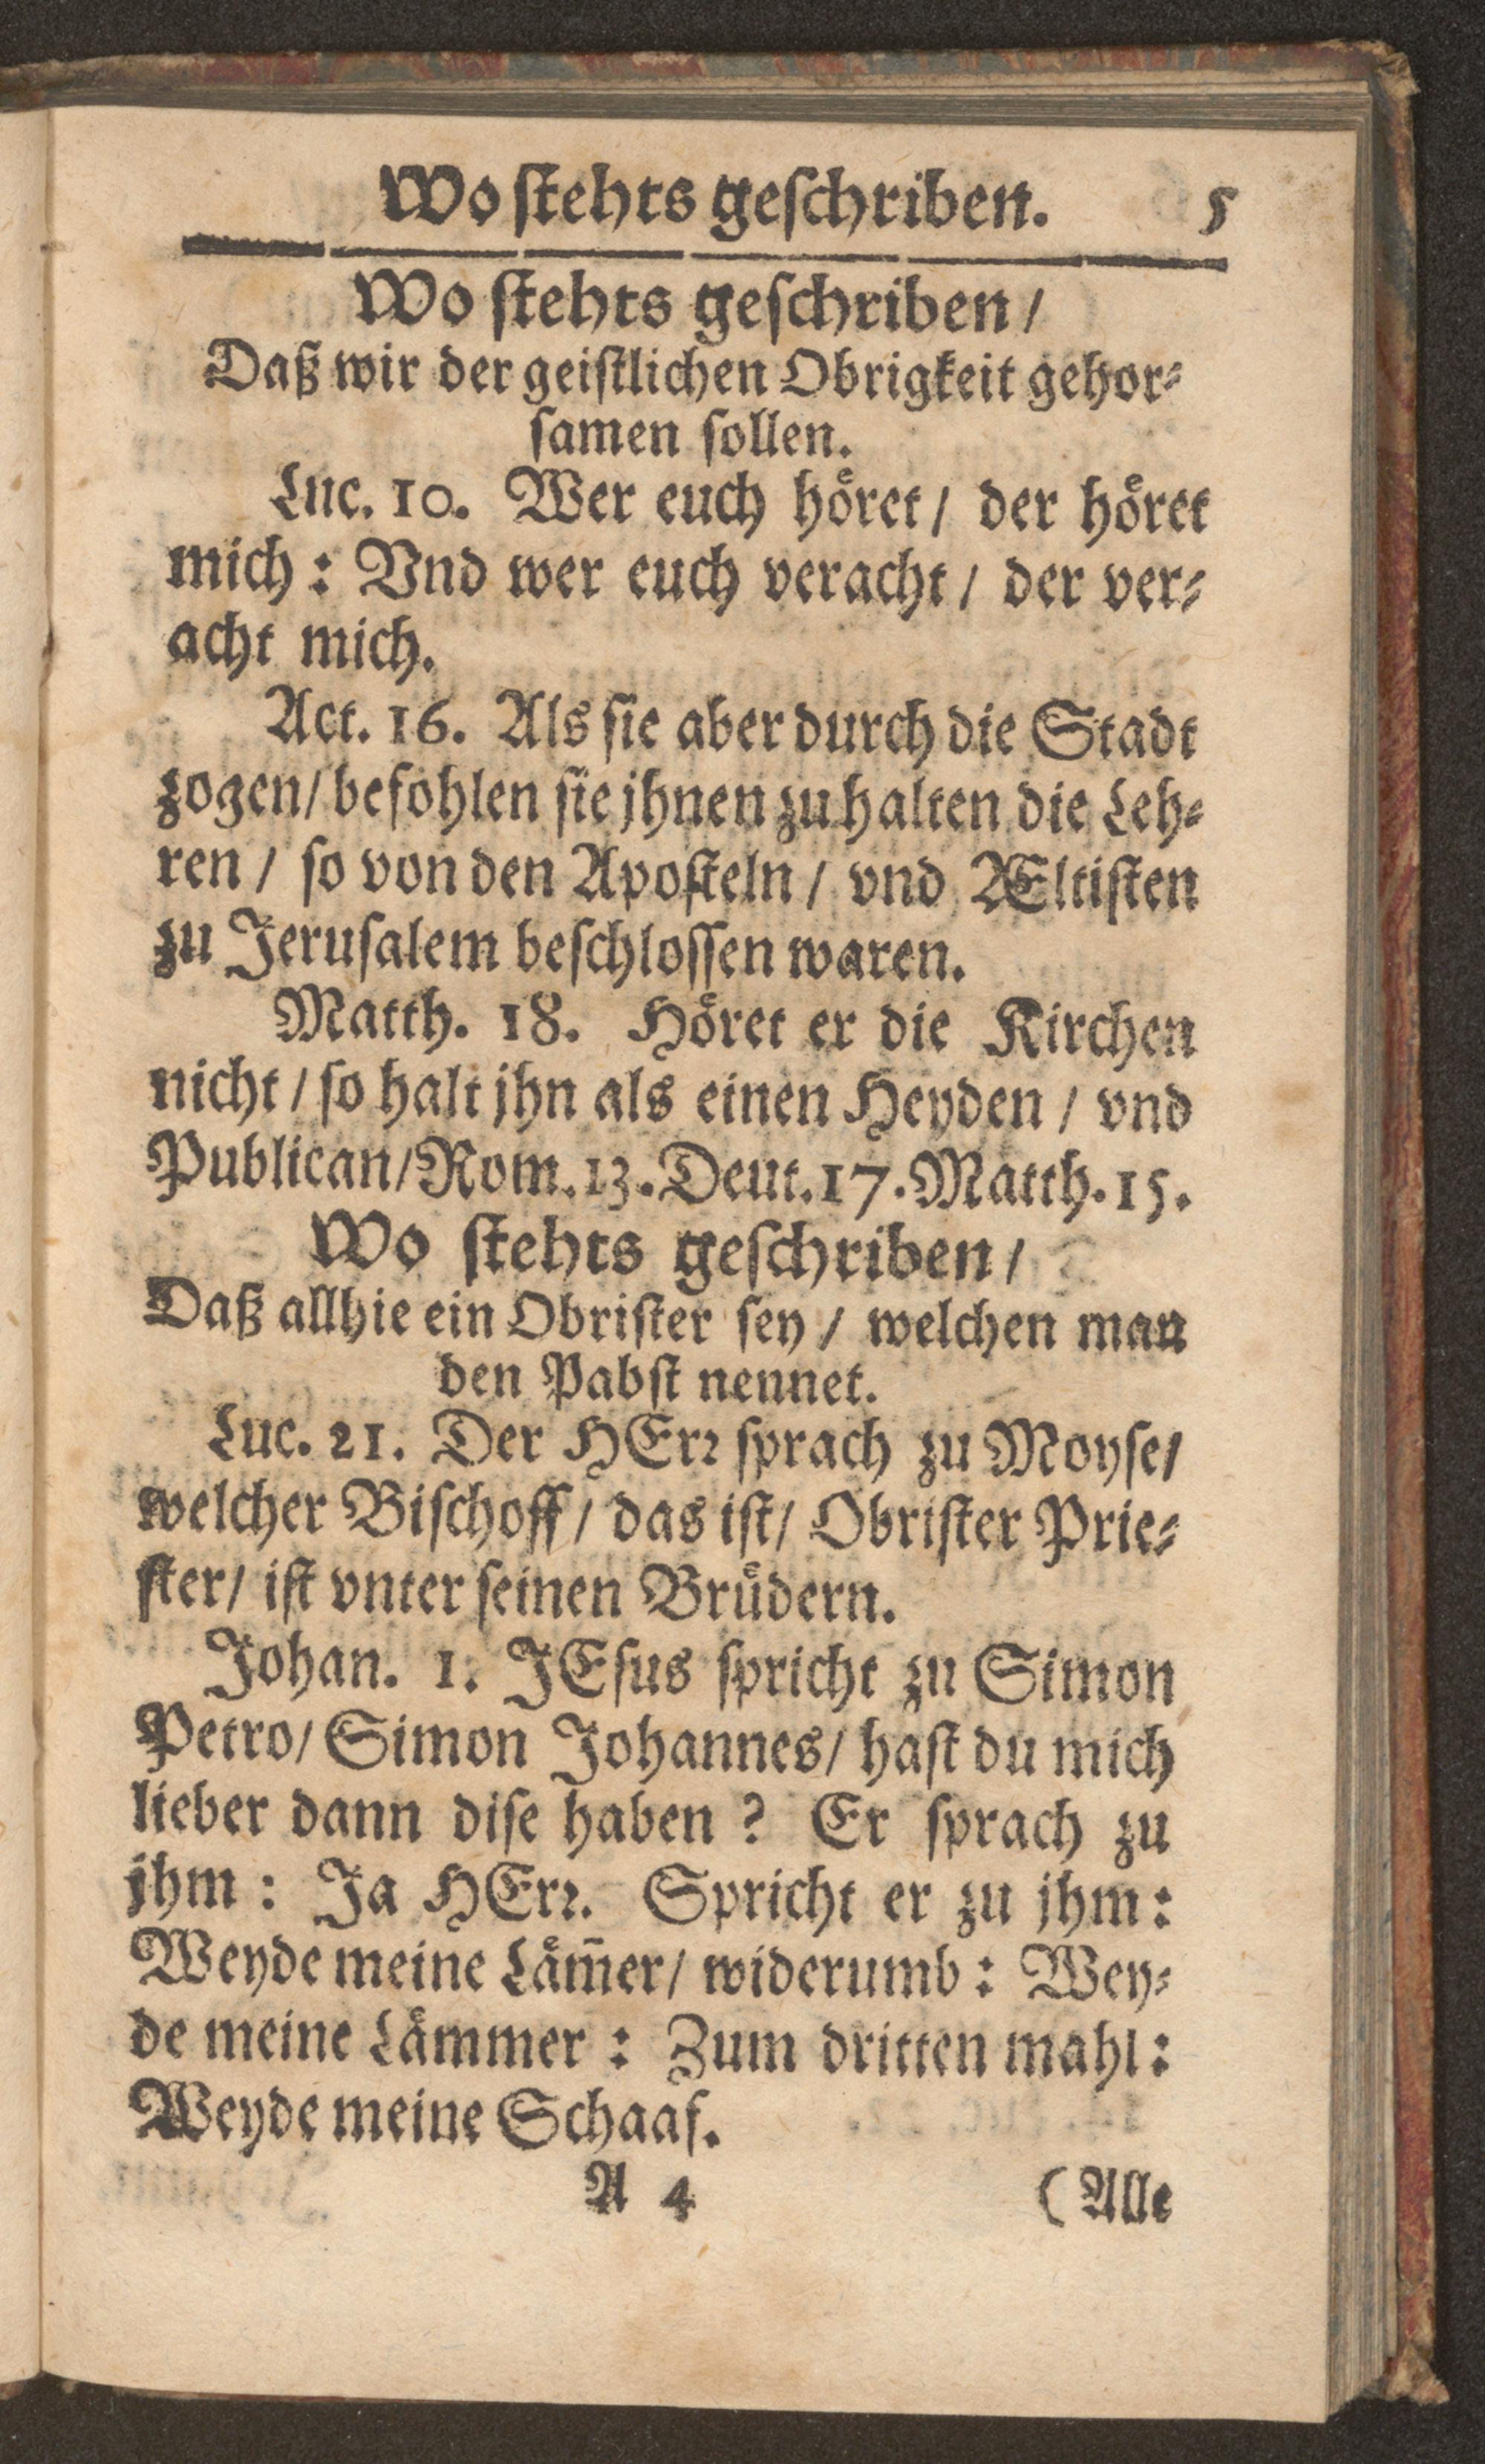 Wo stehts geschriben. 5
Wo stehts geschriben /
Daß wir der geistlichen Obrigkeit gehor⸗
samen sollen.
Luc. 10. Wer euch hoͤret / der hoͤret
mich : Vnd wer euch veracht / der ver⸗
acht mich.
Act. 16. Als sie aber durch die Stadt
zogen / befohlen sie jhnen zu halten die Leh⸗
ren / so von den Aposteln / vnd AEltisten
zu Jerusalem beschlossen waren.
Matth. 18. Hoͤret er die Kirchen
nicht / so halt jhn als einen Heyden / vnd
Publican / Rom. 13. Deut. 17. Matth. 15.
Wo stehts geschriben /
Daß allhie ein Obrister sey / welchen man
den Pabst nennet.
Luc. 21. Der HErꝛ sprach zu Moyse /
welcher Bischoff / das ist / Obrister Prie⸗
ster / ist vnter seinen Bruͤdern.
Johan. 1. JEsus spricht zu Simon
Petro / Simon Johannes / hast du mich
lieber dann dise haben ? Er sprach zu
jhm : Ja HErꝛ. Spricht er zu jhm :
Weyde meine Laͤm̃er / widerumb : Wey⸗
de meine Laͤmmer : Zum dritten mahl :
Weyde meine Schaaf.
A 4 (Alle